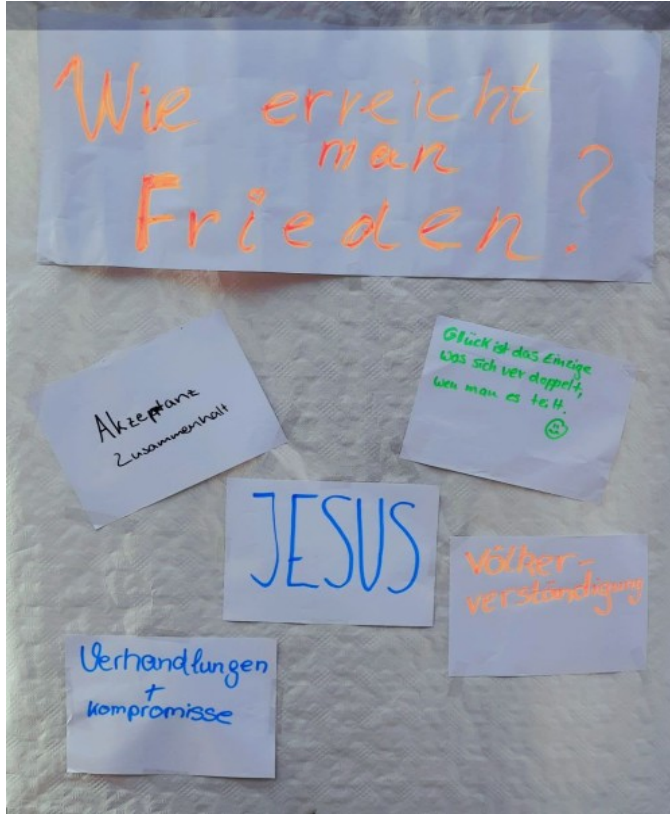 Wie erreicht
man
Frieden?
Akzeptanz
Zusammenhalt
Glück ist das Einzige
was sich verdoppelt,
wen man es teilt.
JESUS
Völker-
verständigung
Verhandlungen
+
Kompromisse